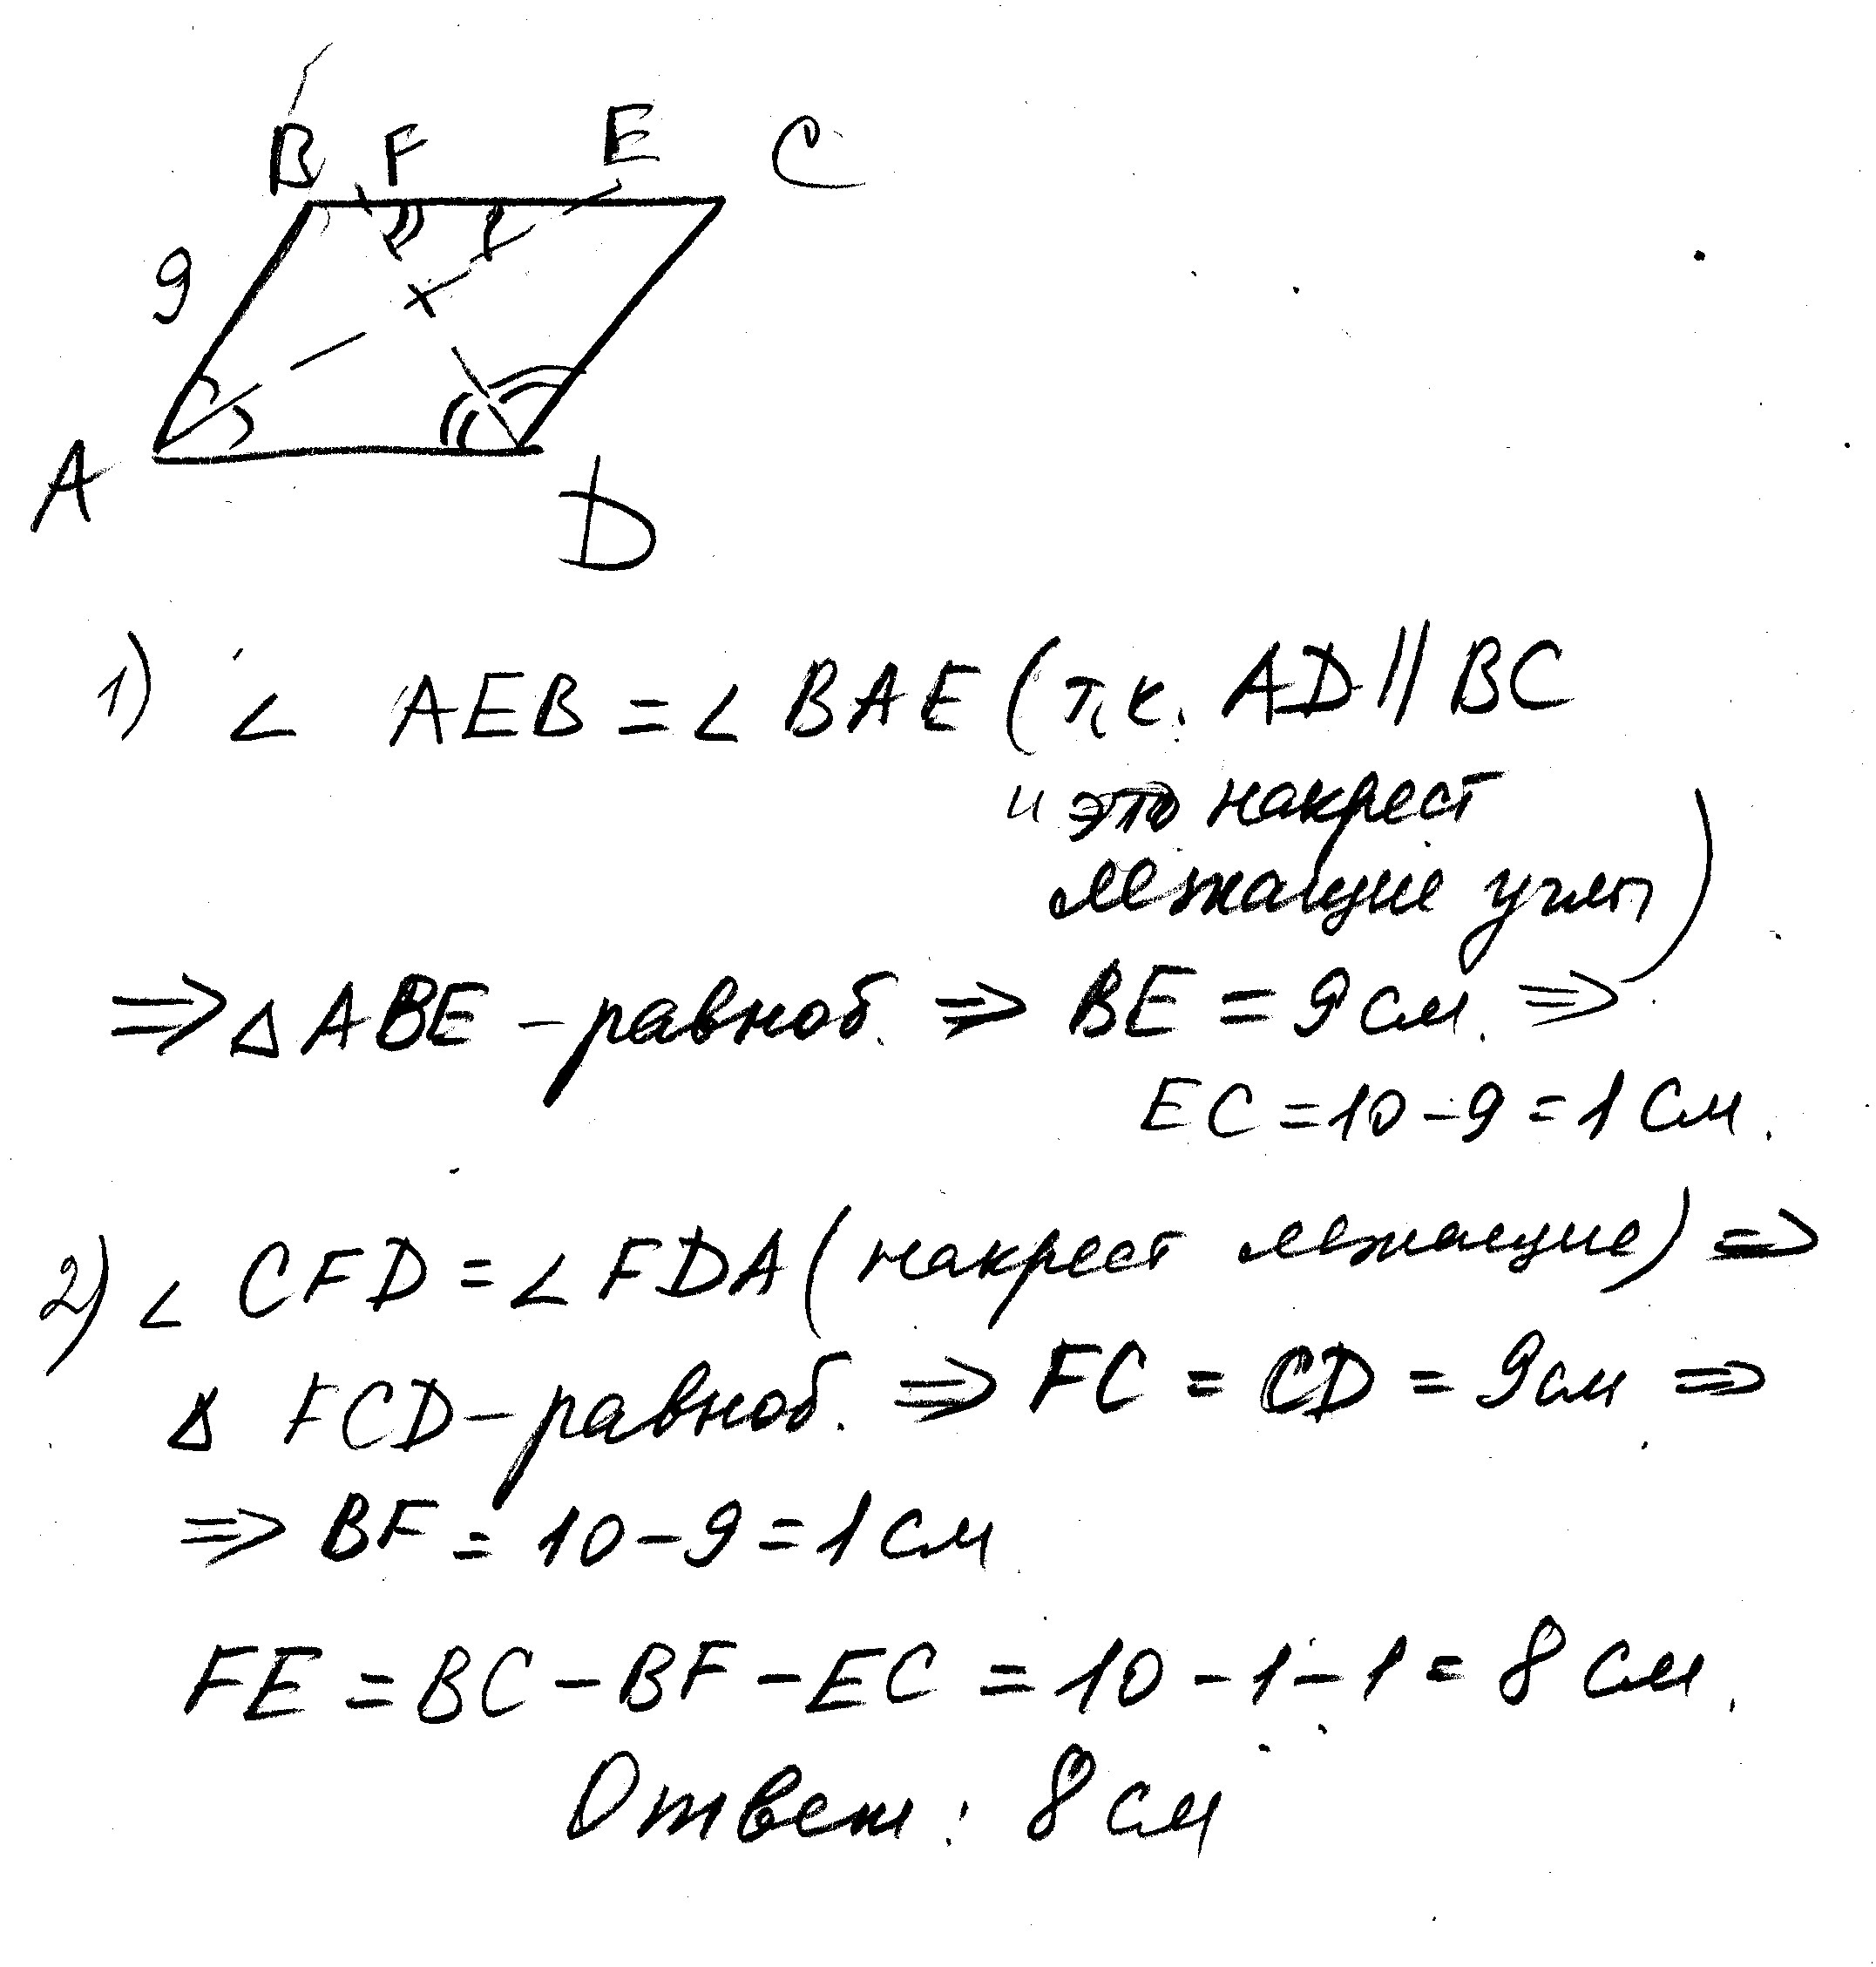 B F E C
9
A
D
1) ∠ AEB = ∠ BAE (т.к. AD || BC
и это накрест
лежащие углы)
⇒ △ ABE – равноб. ⇒ BE = 9 см. ⇒
EC = 10 – 9 = 1 см.
2) ∠ CFD = ∠ FDA (накрест лежащие) ⇒
△ FCD – равноб. ⇒ FC = CD = 9 см ⇒
⇒ BF = 10 – 9 = 1 см
FE = BC – BF – EC = 10 – 1 – 1 = 8 см.
Ответ: 8 см